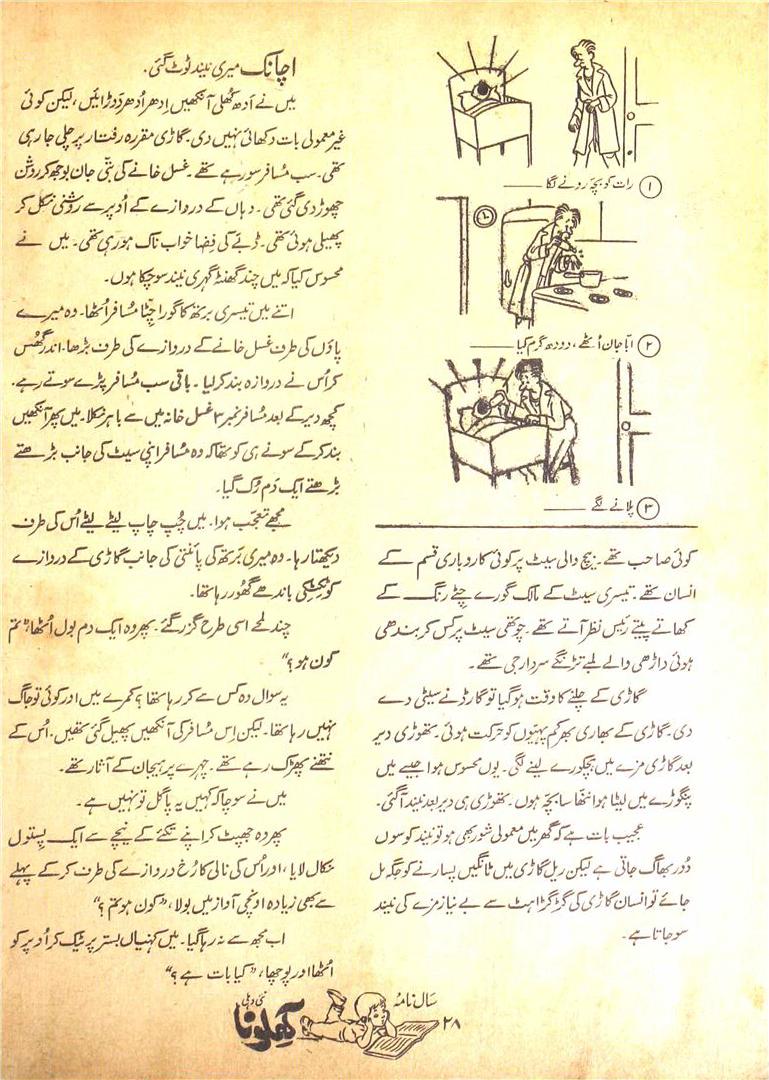 ۱ رات کو بچہ رونے لگا ــــــ
۲ ابا جان اُٹھے، دودھ گرم کیا ــــــ
۳ پلانے لگے ــــــ
کوئی صاحب تھے۔ بیچ والی سیٹ پر کوئی کاروباری قسم کے
انسان تھے۔ تیسری سیٹ کے مالک گورے چِٹّے رنگ کے
کھاتے پیتے رئیس نظر آتے تھے۔ چوتھی سیٹ پر کس کر بندھی
ہوئی داڑھی والے لمبے تڑنگے سردار جی تھے۔
گاڑی کے چلنے کا وقت ہو گیا تو گارڈ نے سیٹی دے
دی۔ گاڑی کے بھاری بھرکم پہیّوں کو حرکت ہوئی۔ تھوڑی دیر
بعد گاڑی مزے میں ہچکورے لینے لگی۔ یوں محسوس ہوا جیسے میں
پنگوڑے میں لیٹا ہوا ننّھا سا بچّہ ہوں۔ تھوڑی ہی دیر بعد نیند آ گئی۔
عجیب بات ہے کہ گھر میں معمولی شور بھی ہو تو نیند کوسوں
دُور بھاگ جاتی ہے لیکن ریل گاڑی میں ٹانگیں پسارنے کو جگہ مل
جائے تو انسان گاڑی کی گڑگڑاہٹ سے بے نیاز مزے کی نیند
سو جاتا ہے۔
اچانک میری نیند ٹوٹ گئی۔
میں نے ادھ کُھلی آنکھیں اِدھر اُدھر دَوڑائیں، لیکن کوئی
غیر معمولی بات دکھائی نہیں دی۔ گاڑی مقررہ رفتار پر چلی جا رہی
تھی۔ سب مُسافر سو رہے تھے۔ غسل خانے کی بتّی جان بوجھ کر روشن
چھوڑ دی گئی تھی۔ وہاں کے دروازے کے اُوپر سے روشنی نکل کر
پھیلی ہوئی تھی۔ ڈبّے کی فِضا خواب ناک ہو رہی تھی۔ میں نے
محسوس کیا کہ میں چند گھنٹہ گہری نیند سو چکا ہوں۔
اتنے میں تیسری برتھ کا گورا چِٹّا مُسافر اُٹھا۔ وہ میرے
پاؤں کی طرف غسل خانے کے دروازے کی طرف بڑھا۔ اندر گُھس
کر اُس نے دروازہ بند کر لیا۔ باقی سب مسافر پڑے سوتے رہے۔
کچھ دیر کے بعد مُسافر نمبر ۳ غسل خانہ میں سے باہر نکلا۔ میں پھر آنکھیں
بند کر کے سونے ہی کو تھا کہ وہ مُسافر اپنی سیٹ کی جانب بڑھتے
بڑھتے ایک دَم رُک گیا۔
مجھے تعجّب ہوا۔ میں چُپ چاپ لیٹے لیٹے اُس کی طرف
دیکھتا رہا۔ وہ میری برتھ کی پائنتی کی جانب گاڑی کے دروازے
کو ٹکٹکی باندھے گُھور رہا تھا۔
چند لمحے اسی طرح گزر گئے۔ پھر وہ ایک دم بول اُٹھا "تم
کون ہو؟"
یہ سوال وہ کس سے کر رہا تھا؟ کمرے میں اور کوئی تو جاگ
نہیں رہا تھا۔ لیکن اِس مُسافر کی آنکھیں پھیل گئی تھیں۔ اُس کے
نتھنے پھڑک رہے تھے۔ چہرے پر ہیجان کے آثار تھے۔
میں نے سوچا کہ کہیں یہ پاگل تو نہیں ہے۔
پھر وہ جھپٹ کر اپنے تکئے کے نیچے سے ایک پِستول
نکال لایا، اور اُس کی نالی کا رُخ دروازے کی طرف کر کے پہلے
سے بھی زیادہ اونچی آواز میں بولا، "کون ہو تم؟"
اب مجھ سے نہ رہا گیا۔ میں کہنیاں بستر پر ٹیک کر اُوپر کو
اُٹھا اور پوچھا، "کیا بات ہے؟"
سال نامہ
۲۸
کھلونا
نئی دہلی